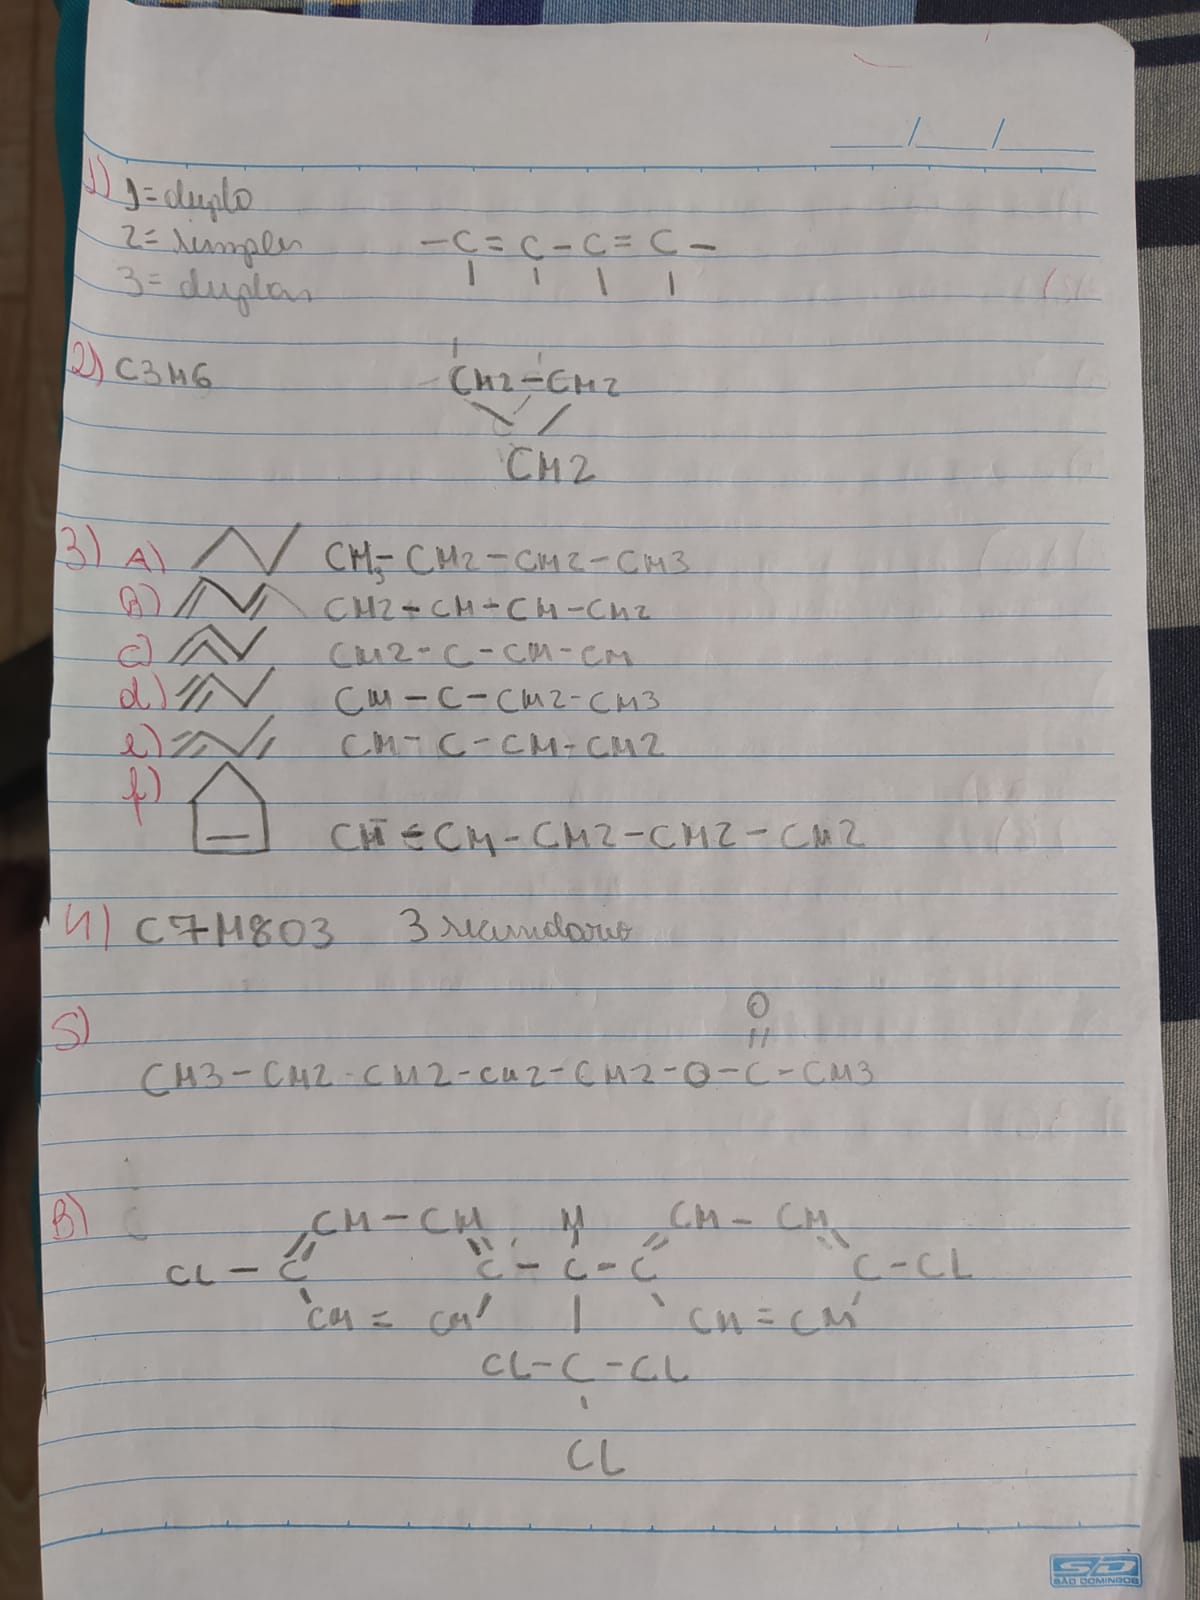 1) 1= duplo
2= simples -C=C-C=C-
3= duplas
2) C3H6 CH2-CH2
CH2
3) A) CH3-CH2-CH2-CH3
B) CH2-CH-CH-CH2
c) CH2-C-CH-CH
d) CH-C-CH2-CH3
e) CH-C-CH-CH2
f)
CH=CH-CH2-CH2-CH2
4) C7H8O3 3 secundario
O
5)
CH3-CH2-CH2-CH2-CH2-O-C-CH3
B) CH-CH H CH-CH
CL-C C-C-C C-CL
CH=CH CH=CH
CL-C-CL
CL
SD
SÃO DOMINGOS